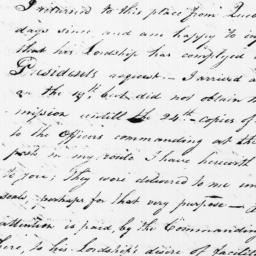 I returned to this place from Que
days since and am happy to in
that his Lordship has complyed
Presidents request – I arrived a
on the 18th. but did not obtain
mission untill the 24th – copies of
to the Officers commanding at the
posts in my route I have herewith
to you; They were delivered to me un
seals, perhaps for that very purpose –
attention is paid, by the Commandin
here, to his Lordship's desire of facilit